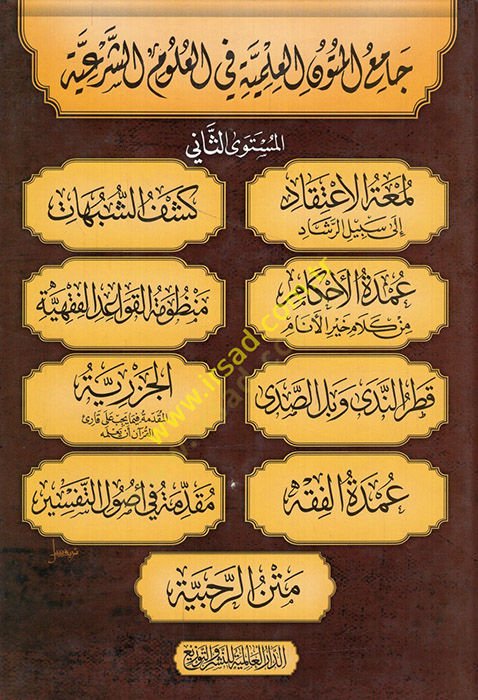 جَامِعُ المُتُونِ العِلْمِيَّةِ فِي العُلُومِ الشَّرْعِيَّةِ
المُسْتَوَى الثَّانِي
لُمْعَةُ الِاعْتِقَادِ
إِلَى سَبِيلِ الرَّشَادِ
كَشْفُ الشُّبُهَاتِ
عُمْدَةُ الأَحْكَامِ
مِنْ كَلَامِ خَيْرِ الأَنَامِ
مَنْظُومَةُ القَوَاعِدِ الفِقْهِيَّةِ
قَطْرُ النَّدَى وَبَلُّ الصَّدَى
الجَزَرِيَّةُ
المُقَدِّمَةُ فِيمَا يَجِبُ عَلَى قَارِئِ
القُرْآنِ أَنْ يَعْلَمَهُ
عُمْدَةُ الفِقْهِ
مُقَدِّمَةٌ فِي أُصُولِ التَّفْسِيرِ
مَتْنُ الرَّحَبِيَّةِ
الدار العالمية للنشر والتوزيع
www.irsad.com.tr